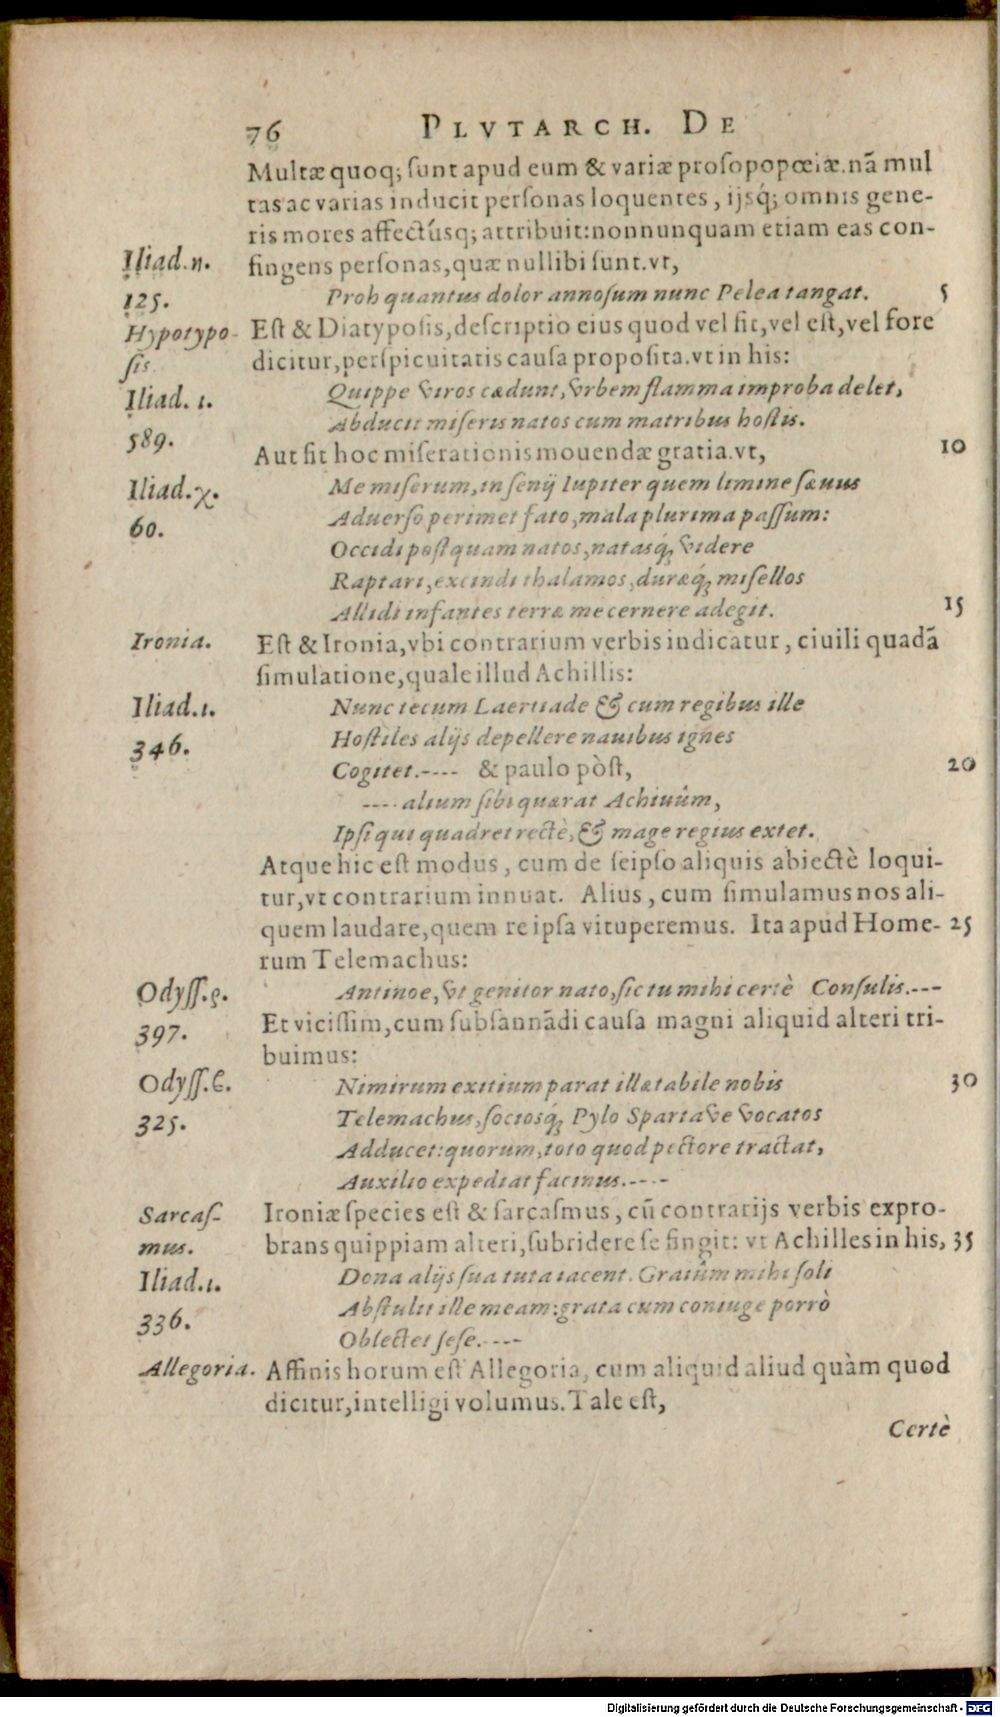 76 PLVTARCH. DE
Multæ quoq; ſunt apud eum & variæ proſopopœiæ. nã mul
tas ac varias inducit perſonas loquentes, ijsq́; omnis gene-
ris mores affectúsq; attribuit: nonnunquam etiam eas con-
Iliad. η.
fingens perſonas, quæ nullibi ſunt. vt,
125.
Proh quantus dolor annoſum nunc Pelea tangat. 5
Hypotypo-
Eſt & Diatypoſis, deſcriptio eius quod vel fit, vel eſt, vel fore
ſis.
dicitur, perſpicuitatis cauſa propoſita. vt in his:
Iliad. ι.
Quippe viros cædunt, vrbem flamma improba delet,
589.
Abducit miſeris natos cum matribus hoſtis.
Aut fit hoc miſerationis mouendæ gratia. vt, 10
Iliad. χ.
Me miſerum, in ſenij Iupiter quem limine ſæuus
60.
Aduerſo perimet fato, mala plurima paſſum:
Occidi poſtquam natos, natasq́; videre
Raptari, excindi thalamos, duræq́; miſellos
Allidi infantes terræ me cernere adegit. 15
Ironia.
Eſt & Ironia, vbi contrarium verbis indicatur, ciuili quadã
ſimulatione, quale illud Achillis:
Iliad. ι.
Nunc tecum Laertiade & cum regibus ille
346.
Hoſtiles alijs depellere nauibus ignes
Cogitet.---- & paulo pòſt, 20
---- alium ſibi quærat Achiuûm,
Ipſi qui quadret rectè, & mage regius extet.
Atque hic eſt modus, cum de ſeipſo aliquis abiectè loqui-
tur, vt contrarium innuat. Alius, cum ſimulamus nos ali-
quem laudare, quem re ipſa vituperemus. Ita apud Home- 25
rum Telemachus:
Odyſſ. ρ.
Antinoe, vt genitor nato, ſic tu mihi certè Conſulis.---
397.
Et viciſſim, cum ſubſannãdi cauſa magni aliquid alteri tri-
buimus:
Odyſſ. ϐ.
Nimirum exitium parat illætabile nobis 30
325.
Telemachus, ſociosq́; Pylo Spartave vocatos
Adducet: quorum, toto quod pectore tractat,
Auxilio expediat facinus.----
Sarcaſ-
Ironiæ ſpecies eſt & ſarcaſmus, cũ contrarijs verbis expro-
mus.
brans quippiam alteri, ſubridere ſe fingit: vt Achilles in his, 35
Iliad. ι.
Dona alijs ſua tuta iacent. Graiûm mihi ſoli
336.
Abſtulit ille meam: grata cum coniuge porrò
Oblectet ſeſe.----
Allegoria.
Affinis horum eſt Allegoria, cum aliquid aliud quàm quod
dicitur, intelligi volumus. Tale eſt,
Certè
Digitalisierung gefördert durch die Deutsche Forschungsgemeinschaft - DFG